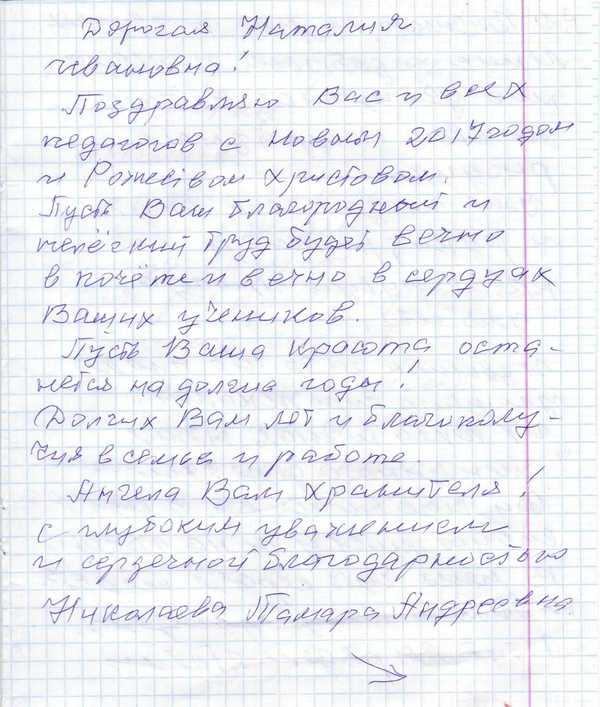 Дорогая Наталия
Ивановна!
Поздравляю Вас и всех
педагогов с Новым 2017 годом
и Рождеством Христовым.
Пусть Ваш благородный и
нелёгкий труд будет вечно
в почёте и вечно в сердцах
Ваших учеников.
Пусть Ваша красота оста-
нется на долгие годы!
Долгих Вам лет и благополу-
чия в семье и работе.
Ангела Вам Хранителя!
С глубоким уважением
и сердечной благодарностью
Николаева Тамара Андреевна.